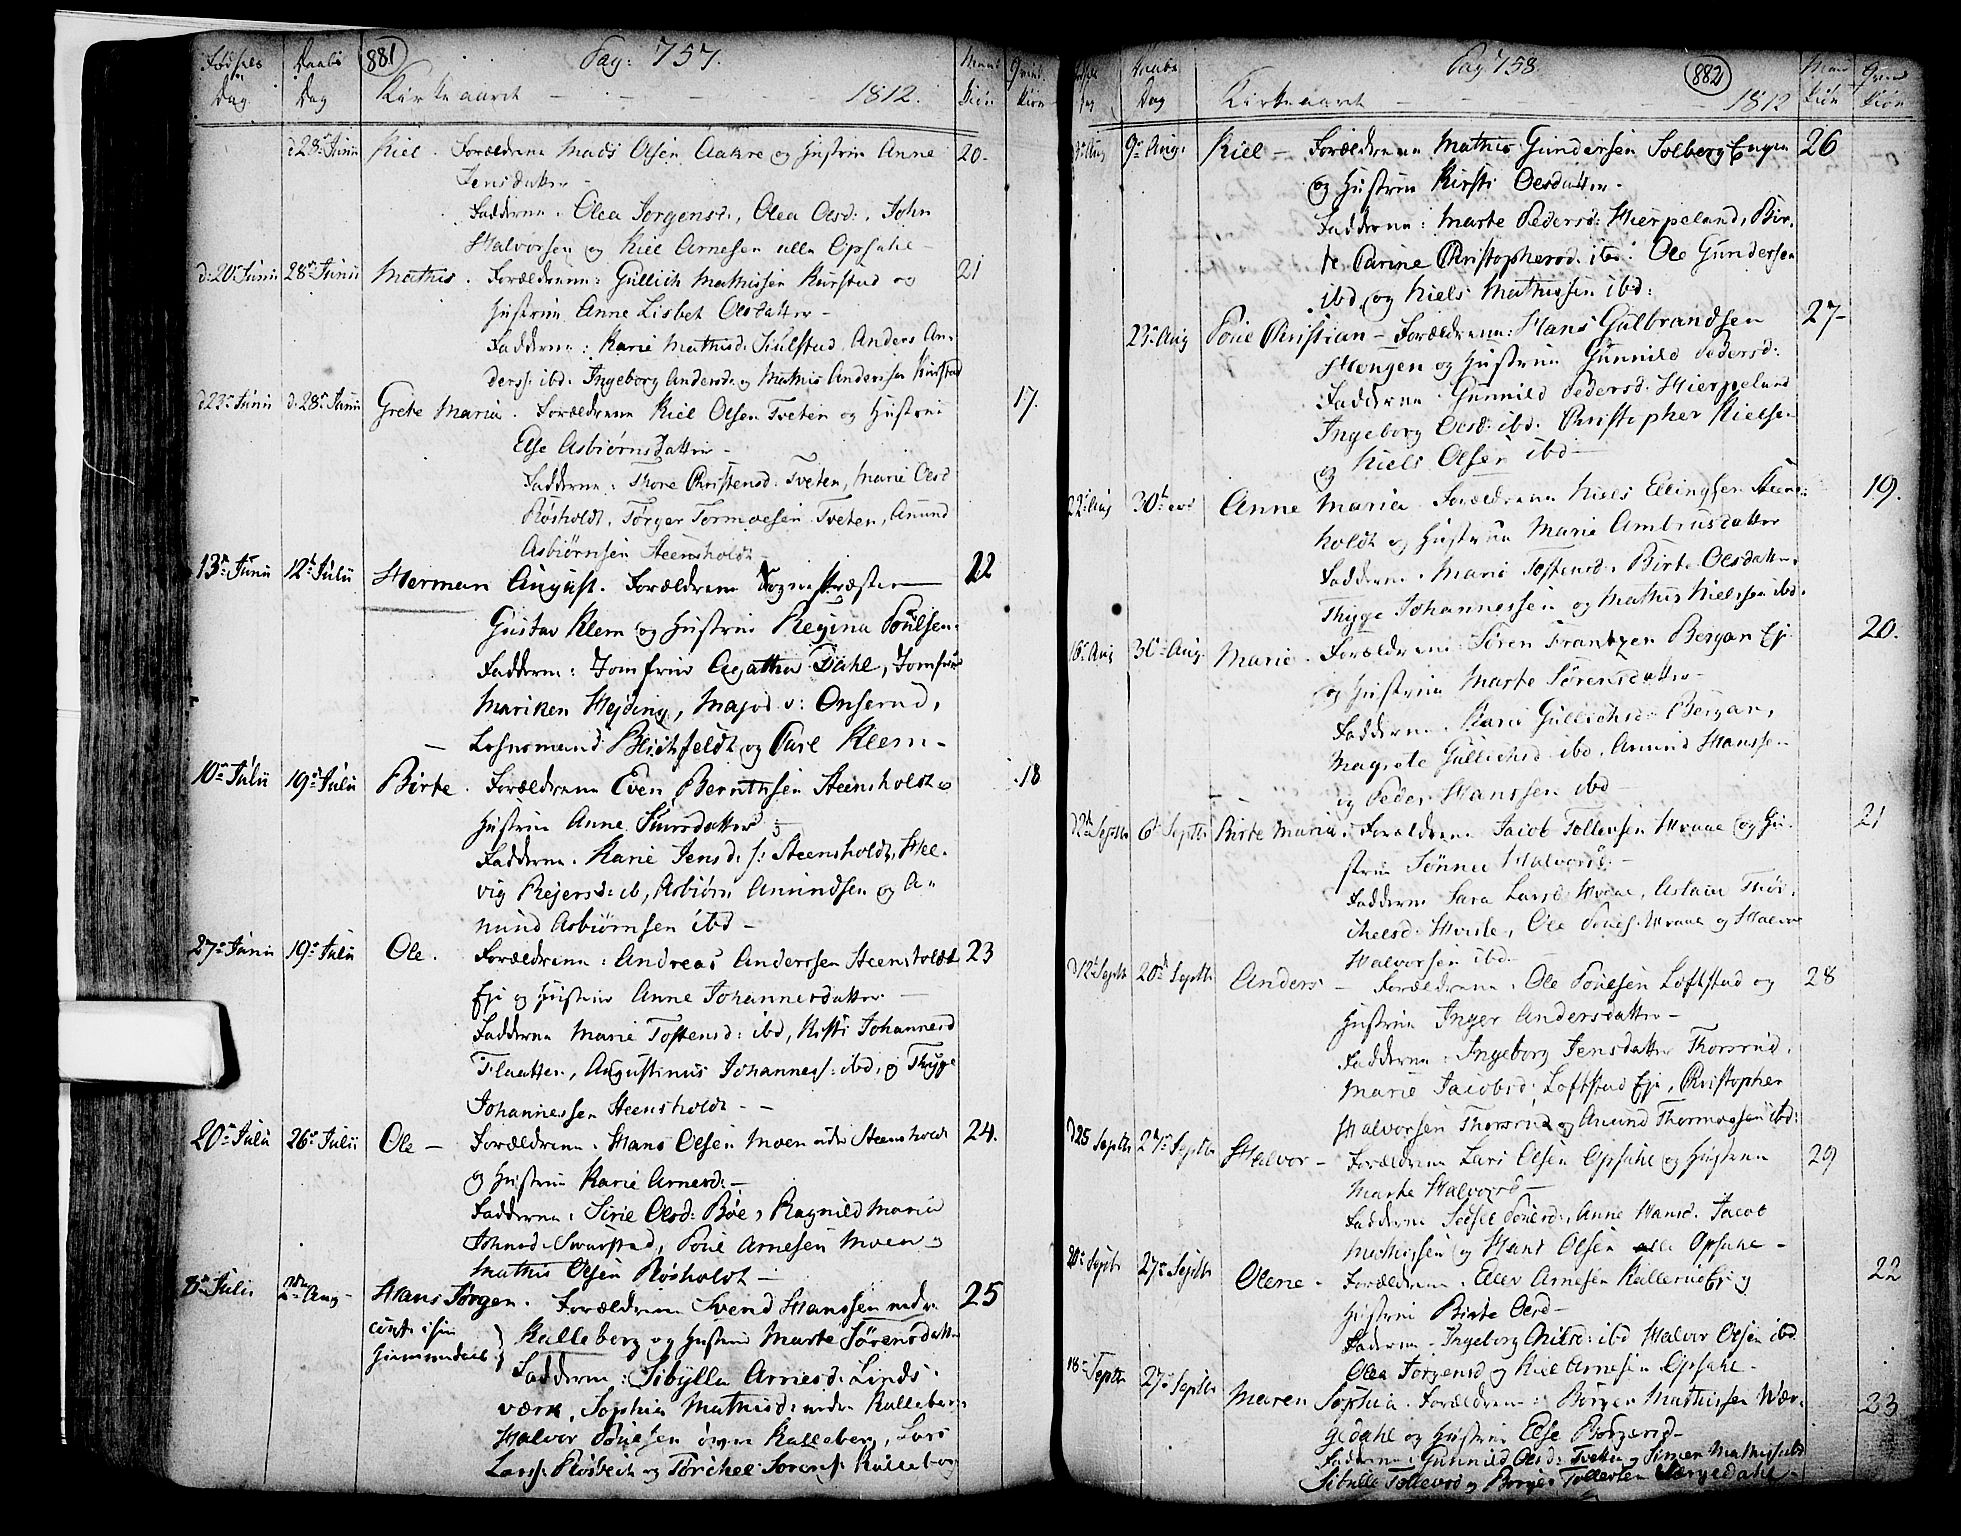 Fødsels Daabs 881 Pag: 757. Mand Qvind
Dag. Dag Kirke aaret - - - 1812. Kiøn Kiøn
d 28de Junii Kiel - Forældrene Mads Olsen Aakre og Hustrue Anne 20.
Jensdatter -
Fadderne. Olea Jørgensd., Olea Olesd., John
Halvorsen og Kiel Arnesen alle Opsahl -
d: 20de Junii 28de Junii Mathis. Forældrene: Gullich Mathissen Kurstad og 21
Hustrue Anne Lisbet Olesdatter -
Fadderne: Karie Mathisd. Anders An-
derss: ibd. Ingeborg Andersd. og Mathis Anderssen Kurstad
d 23de Junii d. 28de Junii Grete Maria. Forældrene Kiel Olsen Tveten og Hustrue 17.
Else Asbiørnsdatter -
Fadderne. Thore Christensd. Tveten, Marie Olesd
Røsholdt, Tørger Tormoesen Tveten, Anund
Asbiørnsen Steensholdt -
13de Junii 12te Julii Herman August. Forældrene Sognepræsten 22
Gustav Klem og Hustrue Regina Poulsen.
Fadderne: Jomfrue Agatha Dahl, Jomfrue
Mariken Hejding, Major v: Onserud,
Blichfeldt og Carl Klem -
10de Julii 19de Julii Birte. Forældrene Even Bernthsen Steensholdt og 18
Hustrue Anne
Fadderne. Karie Jensd: Steensholdt, Hel-
vig Rejersd: ib, Asbiørn Amundsen og A-
nund Asbiørnsen ibd -
27de Junii 19de Julii Ole. Forældrene: Andreas Anderssen Steensholdt 23
Eje og Hustrue Anne Johannesdatter -
Fadderne Marie Tostensd: ibd, Kisti Johannesd
Flaatten, Augustinus Johanness: ibd, og Thyge
Johannessen Steensholdt - -
20de Julii 26de Julii Ole - Forældrene. Hans Olsen Moen under Steensholdt 24.
og Hustrue Karie Arnesd: -
Fadderne: Sirie Olsd: Bøe, Ragnild Maria
Johnsd. Poul Arnesen Moen og
Mathis Olsen Røsholdt -
8de Julii 2den Aug - Hans Jørgen. Forældrene Svend Hanssen nedre 25
Kalleberg og Hustrue Marte Sørensdatter
Hiemmedøbt
Fadderne: Sibylla Arnesd. Linds-
værk, Sophia Mathisd: nedre Kalleberg,
Halvor Pouelsen øvre Kalleberg, Lars
Larss: og Torchel Sørens: Kalleberg
Dag Daabs Pag 758. 882 Mand Qvind
Dag Kirke aaret - - - 1812 Kiøn Kiøn
9de Aug. Kiel - Forældrene Mathis Gundersen Solberg Engen 26
og Hustrue Kirsti Olesdatter -
Fadderne: Marte Pedersd: Hierpeland, Bir-
te Carine Christophersd: ibd: Ole Gundersen
ibd, og Niels Mathissen ibd:
23de Aug Poul Christian - Forældrene: Hans Gulbrandsen 27 -
Mongen og Hustrue Gunnild Pedersd:
Fadderne. Gunnild Pedersd. Hierpeland
Ingeborg Olesd: ibd. Christopher Kielsen
og Niels Olsen ibd -
22de Aug 30te Anne Maria. Forældrene Niels Ellingsen Steens- 19.
holdt og Hustrue Marie Ambrusdatter
Fadderne. Marie Tostensd. Birte Olesdatter,
Thyge Johannessen og Mathis Nielssen ibd.
16de Aug 30te Aug. Marie. Forældrene: Søren Frantzen Bergan Eje 20.
og Hustrue Marte Sørensdatter -
Fadderne. Karie Gullichsd. Bergan,
Magrete Gullichsd ibd. Amund Hanssen
og Peder Hanssen ibd -
d 2den Septbr 6te Septbr Birte Maria. Forældrene Jacob Tollevsen Wraae og Hu- 21
strue Sønnev Halvorsd. -
Fadderne Sara Larsd. Wraae, Aslaw Thor-
chelsd. Ole Wraae og Halvor
Halvorsen ibd -
d 12te Septbr 20de Septbr Anders - Forældrene. Ole Pouelsen Løftstad og 28
Hustrue Inger Andersdatter -
Fadderne: Ingeborg Jensdatter Thorsrud.
Marie Jacobsd: Løftstad Eje, Christopher
Halvorsen Thorsrud og Anund Thormoesen ibd:
d 25 Septbr 27de Septbr Halvor - Forældrene Lars Olsen Opsahl og Hustrue 29
Marte Halvorsd -
Fadderne Sidsel Pouelsd:, Anne Hansd. Jacob
Mathissen og Hans Olsen alle Opsahl -
20de Septbr 27de Septbr Olene - Forældrene. Ellev Arnesen Kallerud Eje og 22
Hustrue Birte Olesd -
Fadderne - Ingeborg Nilsd: ibd Halvor Olsen ibd.
Olea Jørgensd og Kiel Arnesen Opsahl -
18de Septbr 27de Septbr Maren Sophia. Forældrene: Børgen Mathissen Wær- 23
gedahl og Hustrue Else Børgersd -
Fadderne: Gunnild Olesd: Tvetten, Simen Mathissen
Sibille Tollevsd og Børger Tollevsen Wærgedahl -